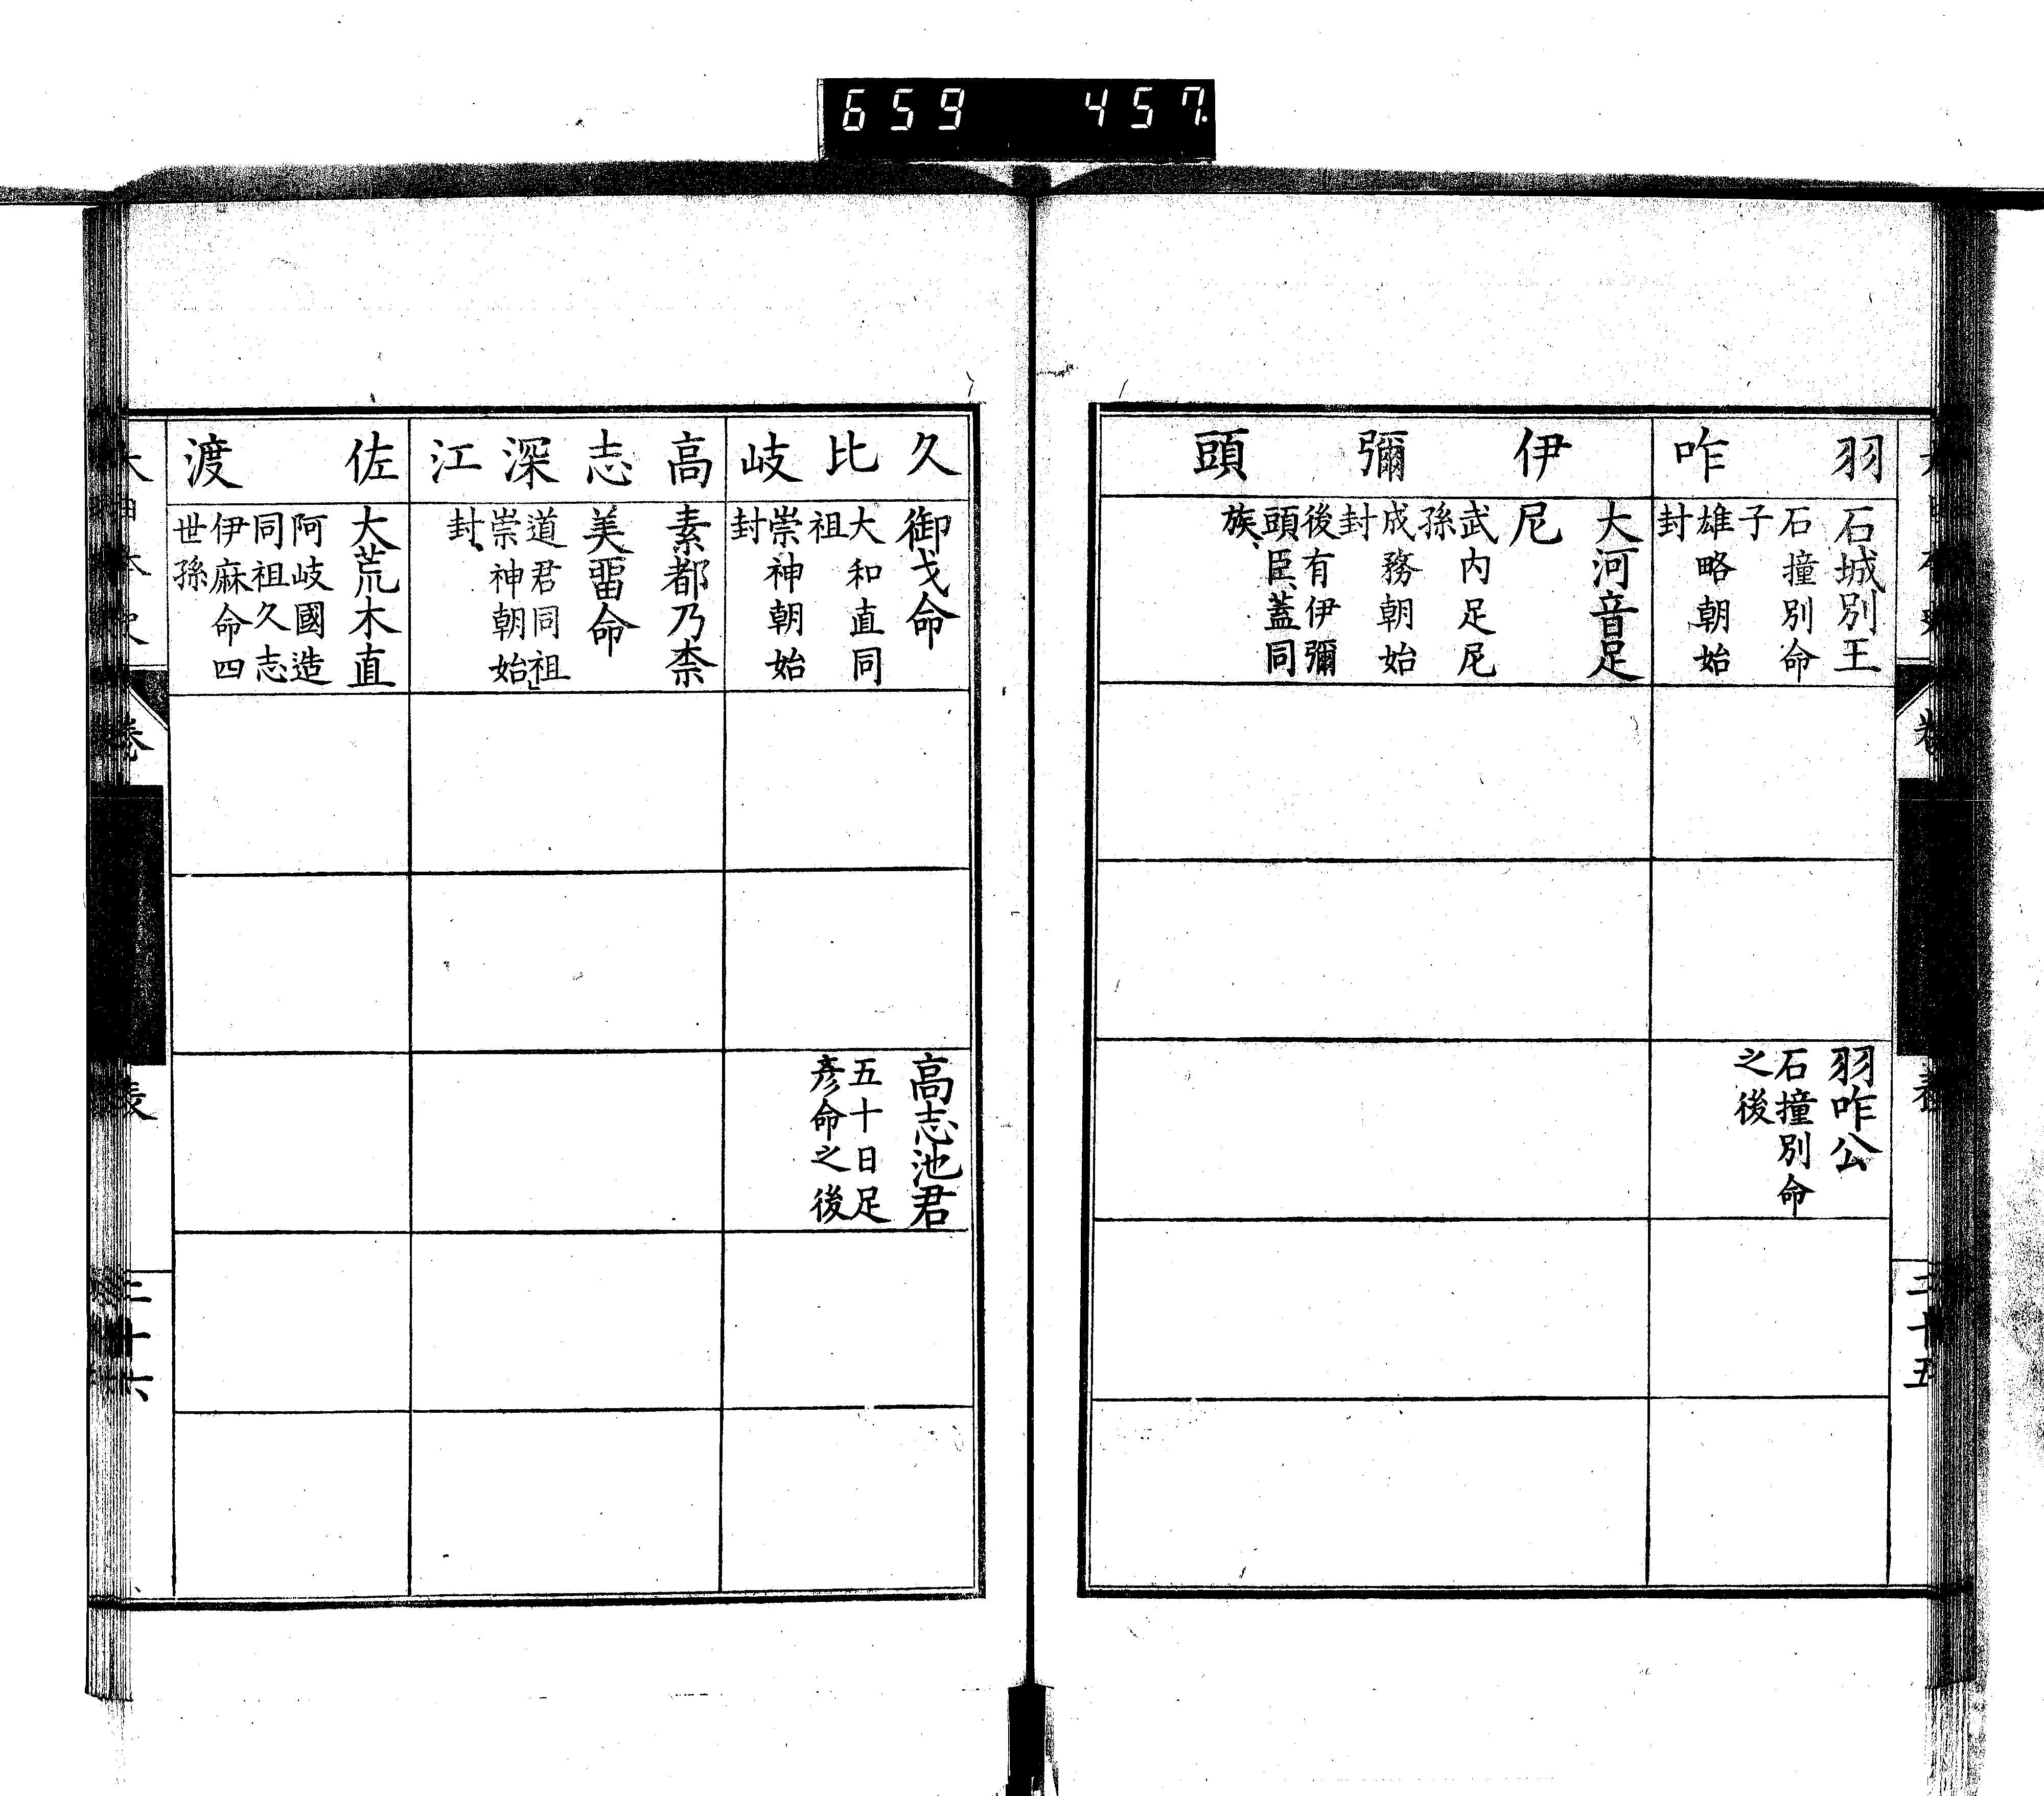 659 457.
羽咋
石城別王
石撞別命
子
雄略朝始
封
羽咋公
石撞別命
之後
伊彌頭
大河音足
尼
武内足尼
孫
成務朝始
封
後有伊彌
頭臣、蓋同
族、
久比岐
御戈命
大和直同
祖
崇神朝始
封
高志池君
五十日足
彦命之後
高志深江
素都乃柰
美留命
道君同祖
崇神朝始
封、
佐渡
大荒木直
阿岐國造
同祖久志
伊麻命四
世孫
表
三十六